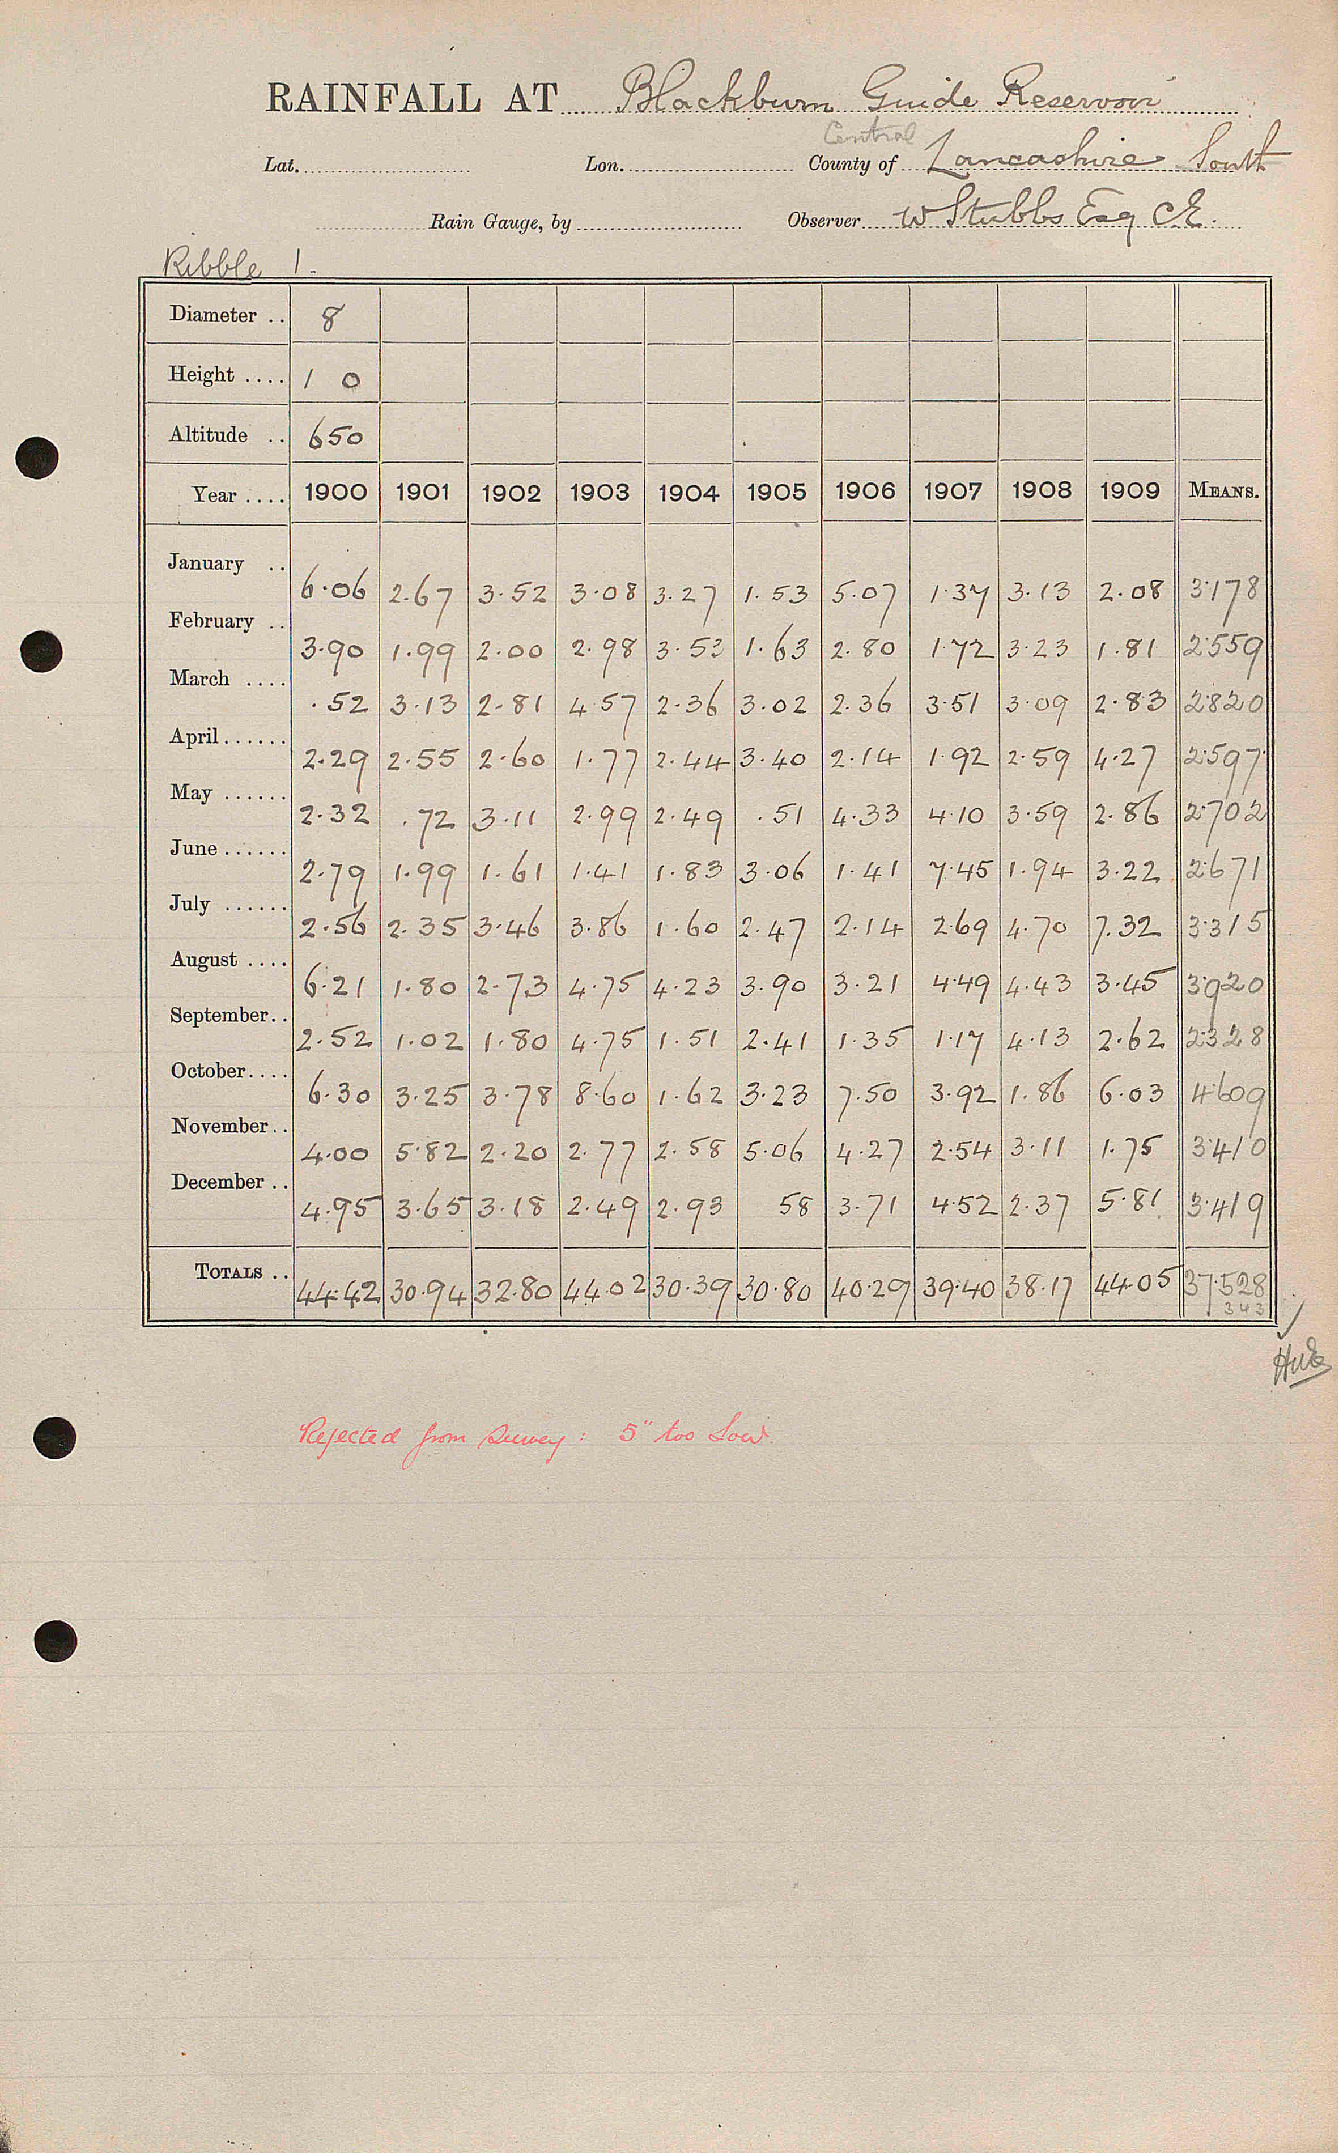 RAINFALL AT Blackburn Guide Reservoir
Central
Lat. Lon. County of Lancashire South
Rain Gauge, by Observer W Stubbs Esq C.E.
Ribble 1.
Diameter .. 8
Height .... 1 0
Altitude .. 650
Year .... 1900 1901 1902 1903 1904 1905 1906 1907 1908 1909 MEANS.
January .. 6.06 2.67 3.52 3.08 3.27 1.53 5.07 1.37 3.13 2.08 3.178
February .. 3.90 1.99 2.00 2.98 3.53 1.63 2.80 1.72 3.23 1.81 2.559
March .... .52 3.13 2.81 4.57 2.36 3.02 2.36 3.51 3.09 2.83 2.820
April...... 2.29 2.55 2.60 1.77 2.44 3.40 2.14 1.92 2.59 4.27 2.597
May ...... 2.32 .72 3.11 2.99 2.49 .51 4.33 4.10 3.59 2.86 2.702
June...... 2.79 1.99 1.61 1.41 1.83 3.06 1.41 7.45 1.94 3.22 2.671
July ...... 2.56 2.35 3.46 3.86 1.60 2.47 2.14 2.69 4.70 7.32 3.315
August .... 6.21 1.80 2.73 4.75 4.23 3.90 3.21 4.49 4.43 3.45 3.920
September.. 2.52 1.02 1.80 4.75 1.51 2.41 1.35 1.17 4.13 2.62 2.328
October.... 6.30 3.25 3.78 8.60 1.62 3.23 7.50 3.92 1.86 6.03 4.609
November.. 4.00 5.82 2.20 2.77 2.58 5.06 4.27 2.54 3.11 1.75 3.410
December .. 4.95 3.65 3.18 2.49 2.93 58 3.71 4.52 2.37 5.81 3.419
TOTALS .. 44.42 30.94 32.80 44.02 30.39 30.80 40.29 39.40 38.17 44.05 37.528
343
Rejected from Survey: 5" too Low.